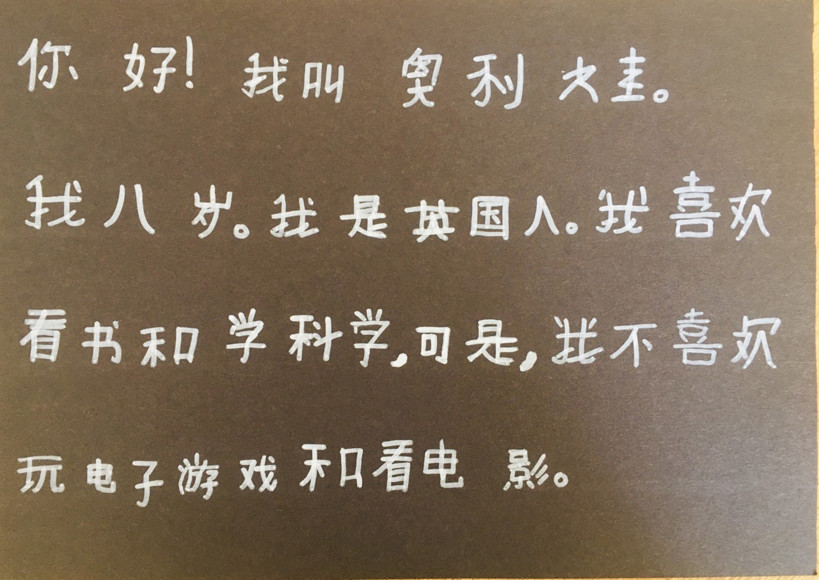 你好!我叫奥利娃。
我八岁。我是英国人。我喜欢
看书和学科学,可是,我不喜欢
玩电子游戏和看电影。